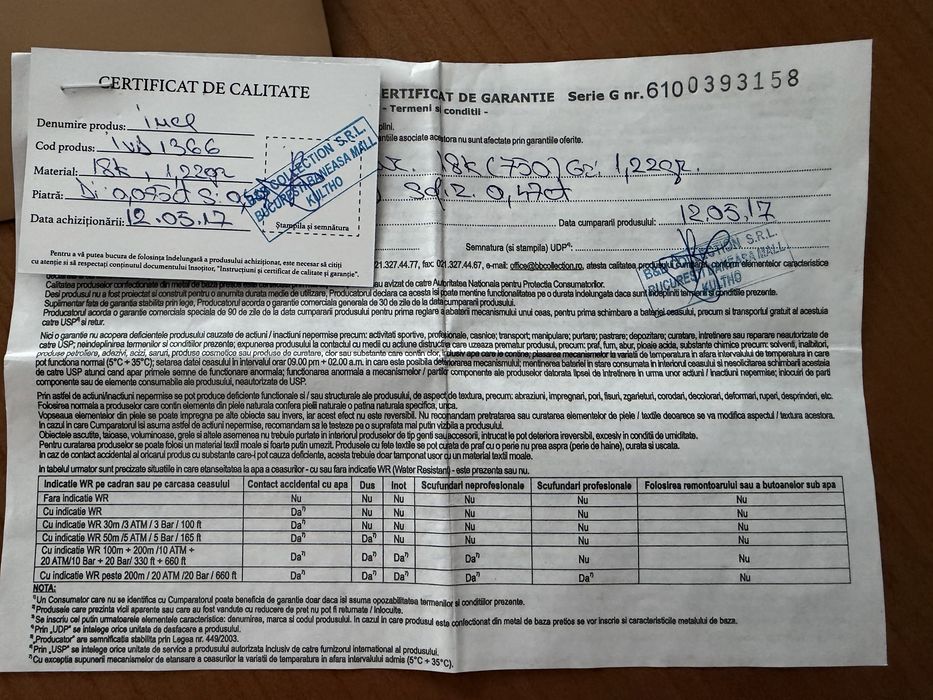 CERTIFICAT DE CALITATE
Denumire produs: inel
Cod produs: 1vd 1366
Material: 18k, 1,22gr
Piatră: Di 0,05ct
Data achiziționării: 12.05.17
Ștampila și semnătura
B&B COLLECTION S.R.L.
BUCURESTI BANEASA MALL
KULTHO
Pentru a vă putea bucura de folosința îndelungată a produsului achiziționat, este necesar să citiți
cu atenție și să respectați conținutul documentului însoțitor, "Instrucțiuni și certificat de calitate și garanție".
ERTIFICAT DE GARANTIE Serie G nr. 6100393158
- Termeni si conditii -
plini.
ntiile asociate acestora nu sunt afectate prin garantiile oferite.
18k (750) Gr: 1,22gr.
0,47ct
Data cumpararii produsului: 12.05.17
Semnatura (si stampila) UDP⁴⁾:
B&B COLLECTION S.R.L.
BUCURESTI BANEASA MALL
KULTHO
021.327.44.77, fax: 021.327.44.67, e-mail: office@bbcollection.ro, atesta calitatea produsului cumparat, conform elementelor caracteristice
Calitatea produselor confectionate din metal de baza pretios este certificata au avizat de catre Autoritatea Nationala pentru Protectia Consumatorilor.
Desi produsul nu a fost proiectat si construit pentru o anumita durata medie de utilizare, Producatorul declara ca acesta isi poate mentine functionalitatea pe o durata indelungata daca sunt indepliniti termenii si conditiile prezente.
Suplimentar fata de garantia stabilita prin lege, Producatorul acorda o garantie comerciala generala de 30 de zile de la data cumpararii produsului.
Producatorul acorda o garantie comerciala speciala de 90 de zile de la data cumpararii produsului pentru prima reglare a abaterii mecanismului unui ceas, pentru prima schimbare a bateriei ceasului, precum si transportul gratuit al acestuia
catre USP⁶⁾ si retur.
Nici o garantie nu acopera deficientele produsului cauzate de actiuni / inactiuni nepermise precum: activitati sportive, profesionale, casnice; transport; manipulare; purtare; pastrare; depozitare; curatare, intretinere sau reparare neautorizate de
catre USP; neindeplinirea termenilor si conditiilor prezente; expunerea produsului in contactul cu medii cu actiune distructiva care uzeaza prematur produsul, precum: praf, fum, abur, ploaie acida, substante chimice precum: solventi, inalbitori,
produse petroliere, adezivi, acizi, saruri, produse cosmetice sau produse de curatare, clor sau substante care contin clor, inclusiv ape care le contine; plasarea mecanismelor la variatii de temperatura in afara intervalului de temperatura in care
pot functiona normal (5°C ÷ 35°C); setarea datei ceasului in intervalul orar 09.00 pm ÷ 02.00 a.m. in care este posibila deteriorarea mecanismului; mentinerea bateriei in stare consumata in interiorul ceasului si nesolicitarea schimbarii acesteia
de catre USP atunci cand apar primele semne de functionare anormala; functionarea anormala a mecanismelor / partilor componente ale produselor datorata lipsei de intretinere in urma unor actiuni / inactiuni nepermise; inlocuiri de parti
componente sau de elemente consumabile ale produsului, neautorizate de USP.
Prin astfel de actiuni/inactiuni nepermise se pot produce deficiente functionale si / sau structurale ale produsului, de aspect, de textura, precum: abraziuni, impregnari, pori, fisuri, zgarieturi, corodari, decolorari, deformari, ruperi, desprinderi, etc.
Folosirea normala a produselor care contin elemente din piele naturala confera pielii naturale o patina naturala specifica, unica.
Vopseaua elementelor din piele se poate impregna pe alte obiecte sau invers, iar acest efect nu este reversibil. Nu recomandam pretratarea sau curatarea elementelor de piele / textile deoarece se va modifica aspectul / textura acestora.
In cazul in care Cumparatorul isi asuma astfel de actiuni nepermise, recomandam sa le testeze pe o suprafata mai putin vizibila a produsului.
Obiectele ascutite, taioase, voluminoase, grele si altele asemenea nu trebuie purtate in interiorul produselor de tip genti sau accesorii, intrucat le pot deteriora ireversibil, excesiv in conditii de umiditate.
Pentru curatarea produselor se poate folosi un material textil moale si foarte putin umezit. Produsele cu fete textile se pot curata de praf cu o perie nu prea aspra (perie de haine), curata si uscata.
In caz de contact accidental al oricarui produs cu substante care-l pot cauza deficiente, acesta trebuie doar tamponat usor cu un material textil moale.
In tabelul urmator sunt precizate situatiile in care etanseitatea la apa a ceasurilor - cu sau fara indicatie WR (Water Resistant) - este prezenta sau nu.
Indicatie WR pe cadran sau pe carcasa ceasului Contact accidental cu apa Dus Inot Scufundari neprofesionale Scufundari profesionale Folosirea remontoarului sau a butoanelor sub apa
Fara indicatie WR Nu Nu Nu Nu Nu Nu
Cu indicatie WR Da⁷⁾ Nu Nu Nu Nu Nu
Cu indicatie WR 30m /3 ATM / 3 Bar / 100 ft Da⁷⁾ Nu Nu Nu Nu Nu
Cu indicatie WR 50m /5 ATM / 5 Bar / 165 ft Da⁷⁾ Da⁷⁾ Nu Nu Nu Nu
Cu indicatie WR 100m ÷ 200m /10 ATM ÷
20 ATM/10 Bar ÷ 20 Bar/ 330 ft ÷ 660 ft Da⁷⁾ Da⁷⁾ Da⁷⁾ Da⁷⁾ Nu Nu
Cu indicatie WR peste 200m / 20 ATM /20 Bar / 660 ft Da⁷⁾ Da⁷⁾ Da⁷⁾ Da⁷⁾ Da⁷⁾ Nu
NOTA:
¹⁾Un Consumator care nu se identifica cu Cumparatorul poate beneficia de garantie doar daca isi asuma opozabilitatea termenilor si conditiilor prezente.
²⁾Produsele care prezinta vicii aparente sau care au fost vandute cu reducere de pret nu pot fi returnate / inlocuite.
³⁾Se inscriu cel putin urmatoarele elemente caracteristice: denumirea, marca si codul produsului. In cazul in care produsul este confectionat din metal de baza pretios se vor inscrie si caracteristicile metalului de baza.
⁴⁾Prin „UDP" se intelege orice unitate de desfacere a produsului.
⁵⁾„Producator" are semnificatia stabilita prin Legea nr. 449/2003.
⁶⁾Prin „USP" se intelege orice unitate de service a produsului autorizata inclusiv de catre furnizorul international al produsului.
⁷⁾Cu exceptia supunerii mecanismelor de etansare a ceasurilor la variatii de temperatura in afara intervalului admis (5°C ÷ 35°C).